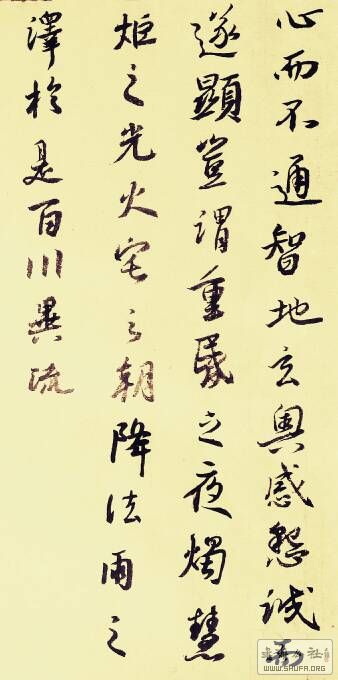 心而不通智地玄奧感懇誠而
遂顯豈謂重昏之夜燭慧
炬之光火宅之朝降法雨之
澤於是百川異流
WWW.SHUFA.ORG